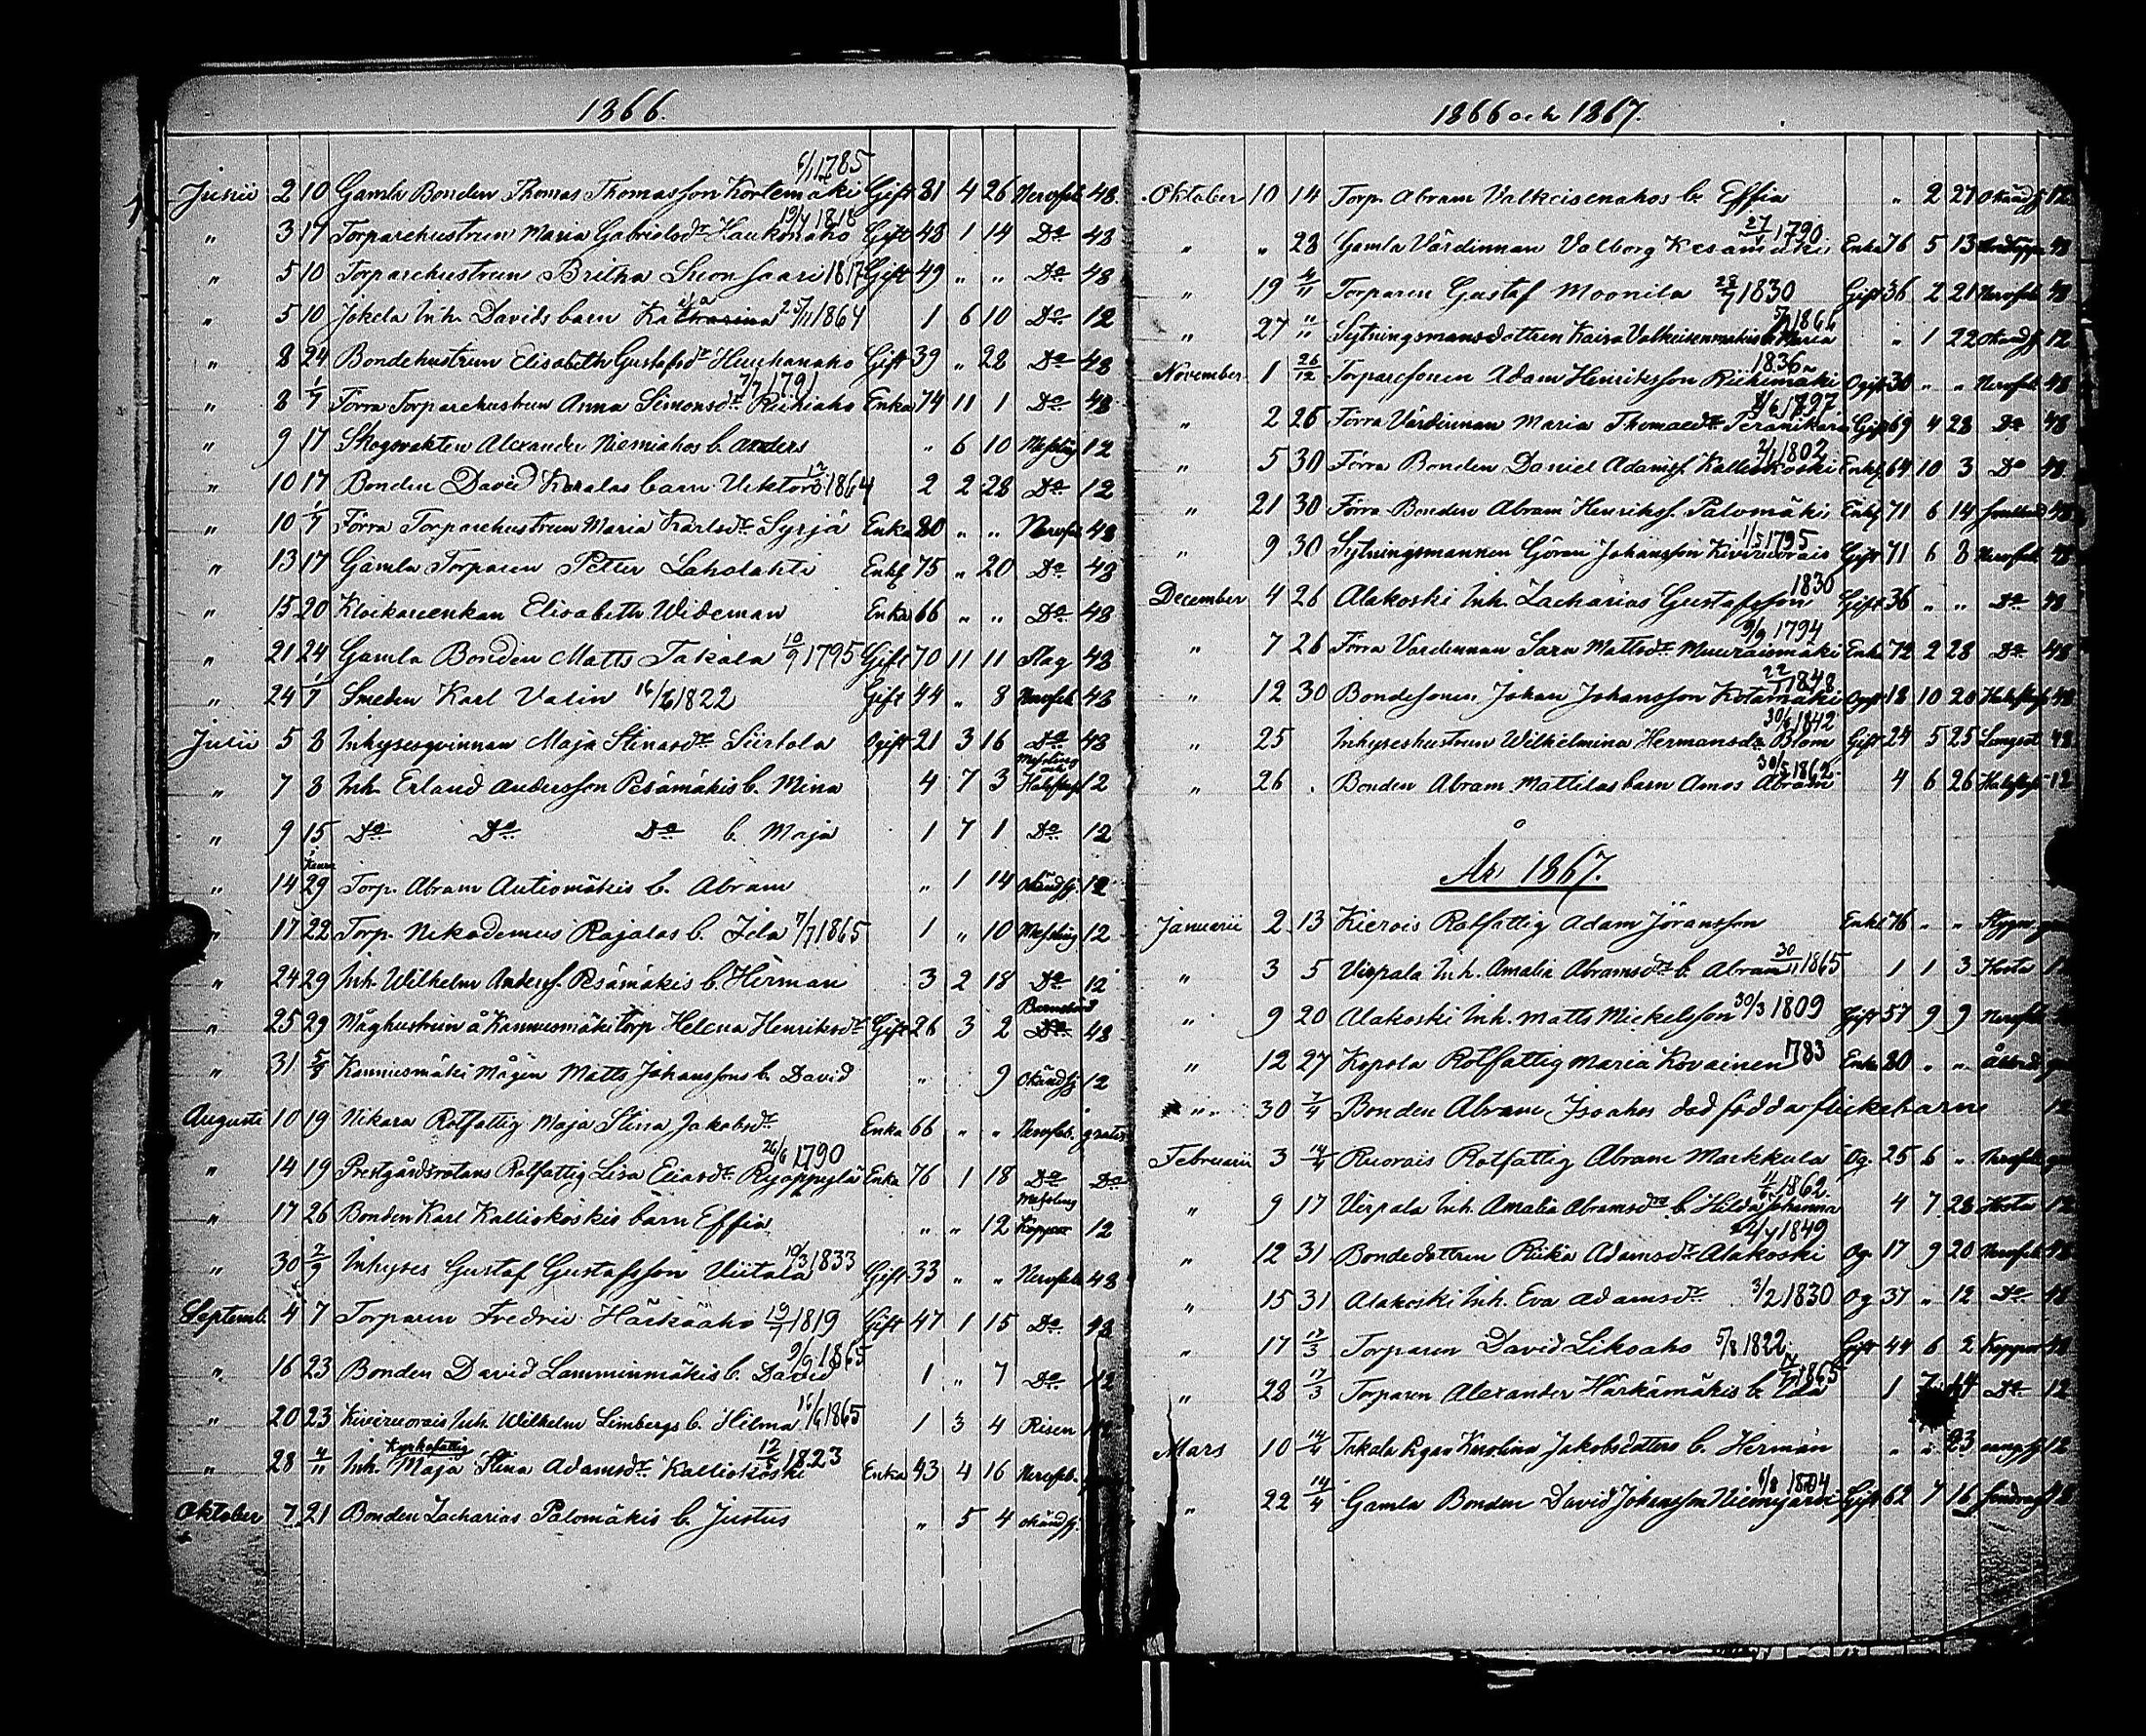 1866.
Junii 2 10 Gamla Bonden Thomas Thomasson Kortemäki 6/1 1785 Gift 81 4 26 Nervfeb. 48
" 3 17 Torparehustrun Maria Gabrielsdr Haukonaho 19/4 1818 Gift 48 1 14 Do 48
" 5 10 Torparehustrun Britha Suonsaari 1817 Gift 49 " " Do 48
" 5 10 Jokela Inh. Davids barn 25/11 1864 1 6 10 Do 12
" 8 24 Bondehustrun Elisabeth Gustafsdr Huuhanaho Gift 39 " 28 Do 48
" 8 1/7 Förra Torparehustrun Anna Simonsdr 7/7 1791 Enka 74 11 1 Do 48
" 9 17 Skogsvakten Alexander Niemiahos b. Anders " 6 10 Messling 12
" 10 17 Bonden David Karalas barn Viktor 1864 2 2 28 Do 12
" 10 1/7 Förra Torparehustrun Maria Karlsdr Syrjä Enka 80 " " Nervfeb 48
" 13 17 Gamla Torparen Petter Laholahti Enkl 75 " 20 Do 48
" 15 20 Klockareenkan Elisabeth Wideman Enka 66 " " Do 48
" 21 24 Gamla Bonden Matts Takala 10/7 1795 Gift 70 11 11 Slag 48
" 24 1/7 Smeden Karl Valin 16/6 1822 Gift 44 " 8 Nervfeb 48
Julii 5 8 Inhysesqvinnan Maja Stinasdr Siirtola Ogift 21 3 16 Do 48
" 7 8 Inh. Erland Andersson Pesämäkis b. Mina 4 7 3 Messling och Halsfluss 12
" 9 15 Do Do Do b. Maja 1 7 1 Do 12
" 14 29 Torp. Abram Autiomäkis b. Abram " 1 14 Okänd sj. 12
" 17 22 Torp. Nikodemus Rajalas b. Ida 7/7 1865 1 " 10 Messling 12
" 24 29 Inh. Wilhelm Anderss. Pesämäkis b. Herman 3 2 18 Do 12
" 25 29 Måghustrun å Kannusmäki torp Helena Henriksdr Gift 26 3 2 Barnsbörd 48
" 31 5/8 Kannusmäki Mågen Matts Johanssons b. David " 9 Okänd sj 12
Augusti 10 19 Nikara Rotfattig Maja Stina Jakobsdr Enka 66 " " Nervfeb. gratis
" 14 19 Prestgårdsrotans Rotfattig Lisa Eliasdr 26/6 1790 Enka 76 1 18 Do Do
" 17 26 Bonden Karl Kalliokoskis barn Effia " " 12 Messling Koppor 12
" 30 2/9 Inhyses Gustaf Gustafsson Viitala 10/3 1833 Gift 33 " " Nervfeb 48
Septemb. 4 7 Torparen Fredric Härkäaho 19/7 1819 Gift 47 1 15 Do 48
" 16 23 Bonden David Lamminmäkis b. David 9/9 1865 1 " 7 Do 12
" 20 23 Kiviruorais Inh. Wilhelm Limbergs b. Hilma 16/6 1865 1 3 4 Risen 12
" 28 4/11 Inh. Kyrkofattig Maja Stina Adamsdr Kalliokoski 12/5 1823 Enka 43 4 16 Nervfeb.
Oktober 7 21 Bonden Zacharias Palomäkis b. Justus " 5 4 okänd sj.
1866 och 1867.
Oktober 10 14 Torp. Abram Valkeisenahos b. Effia " 2 27 Okänd sj 12
" " 28 Gamla Värdinnan Valborg Kesämäki 27/4 1790 Enka 76 5 13 48
" 19 4/11 Torparen Gustaf Moonila 28/7 1830 Gift 36 2 21 Nervfeb 48
" 27 " Sytningsmansdottren Kaisa Valkeisenmäkis b Maria 5/9 1866 " 1 22 Okänd sj 12
November 1 26/12 Torparesonen Adam Henriksson Riihimäki 1836 Ogift 30 " " Nervfeb 48
" 2 26 Förra Värdinnan Maria Thomasdr Peränikara 4/6 1797 Gift 69 4 28 Do 48
" 5 30 Förra Bonden Daniel Adamss. Kalliokoski 2/1 1802 Enkl 64 10 3 Do 48
" 21 30 Förra Bonden Abram Henrikss. Palomäki Enkl 71 6 14 48
" 9 30 Sytningsmannen Göran Johansson Kiviruorais 1/5 1795 Gift 71 6 8 Nervfeb 48
December 4 26 Alakoski Inh. Zacharias Gustafsson 1830 Gift 36 " " Do 48
" 7 26 Förra Värdinnan Sara Mattsdr Muuraismäki 9/9 1794 Enka 72 2 28 Do 48
" 12 30 Bondesonen Johan Johansson Kotamäki 22/1 1848 Ogift 18 10 20 Halsfluss 48
" 25 Inhyseshustrun Wilhelmina Hermansdr Blom 30/6 1842 Gift 24 5 25 Lungsot 48
" 26 . Bonden Abram Mattilas barn Amos Abram 30/5 1862 4 6 26 Halsfluss 12
År 1867.
Januarii 2 13 Kierois Rotfattig Adam Jöransson Enkl 76 " " Stygn
" 3 5 Virpala Inh. Amalia Abramsdrs b. Abram 30/11 1865 1 1 3 Hosta 12
" 9 20 Alakoski Inh. Matts Mickelsson 30/3 1809 Gift 57 9 9 Nervfeb
" 12 27 Kopola Rotfattig Maria Kovainen 1783 Enka 80 " " Ålderd.
" 30 7/4 Bonden Abram Isoahos död födda flickebarn 12
Februarii 3 14/4 Ruorais Rotfattig Abram Markkula Og. 25 6 " Nervfeb
" 9 17 Virpala Inh. Amalia Abramsdrs b. Hilda Johanna 4/6 1862 4 7 28 Hosta 12
" 12 31 Bondedottren Riika Adamsdr Alakoski 1849 Og. 17 9 20 Nervfeb 48
" 15 31 Alakoski Inh. Eva Adamsdr 3/2 1830 Og 37 " 12 Do 48
" 17 17/3 Torparen David Likoaho 5/8 1822 Gift 44 6 2 Koppor 48
" 28 17/3 Torparen Alexander Härkämäkis b. Ida 14/7 1865 1 7 14 Do 12
Mars 10 14/4 Takala Pigan Karolina Jakobsdotters b. Herman " " 23 12
" 22 14/4 Gamla Bonden David Johansson Niemijärvi 6/8 1804 Gift 62 7 16 48